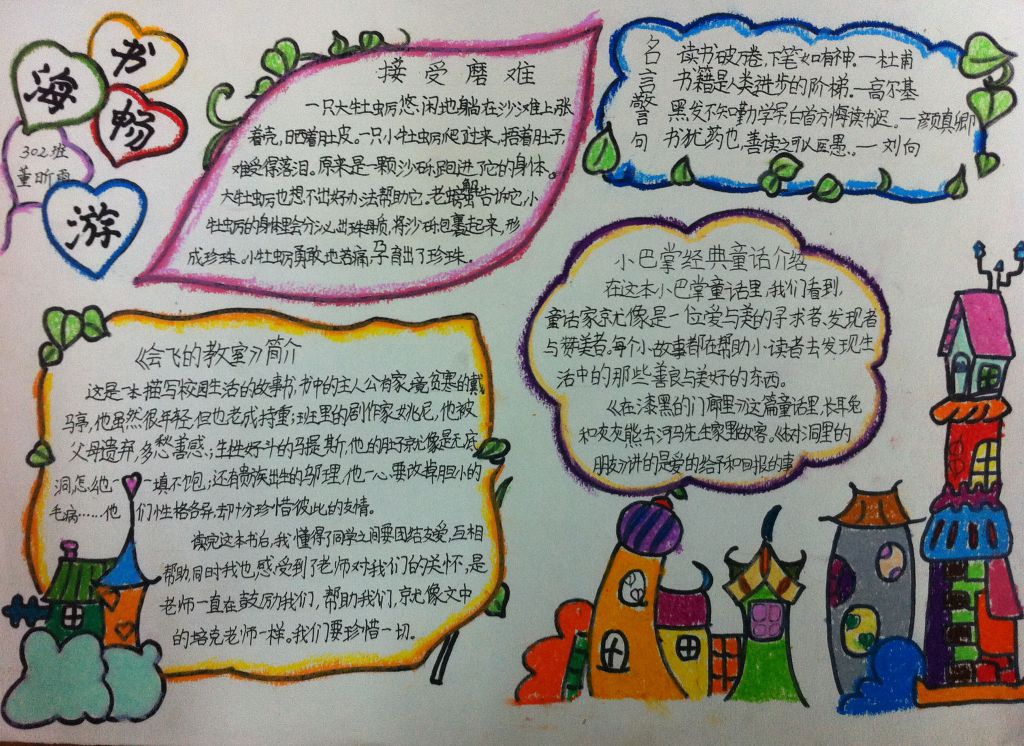 书
海
畅
游
302班
董昕雨
接受磨难
一只大牡蛎悠闲地躺在沙滩上,张
着壳,晒着肚皮。一只小牡蛎爬过来,捂着肚子
难受得落泪。原来是一颗沙砾跑进了它的身体。
大牡蛎也想不出好办法帮助它。老螃蟹告诉它,小
牡蛎的身体里会分泌出珠母质,将沙砾包裹起来,形
成珍珠。小牡蛎勇敢地忍着痛孕育出了珍珠。
名言警句
读书破万卷,下笔如有神。—杜甫
书籍是人类进步的阶梯。—高尔基
黑发不知勤学早,白首方悔读书迟。—颜真卿
书犹药也,善读之可以医愚。—刘向
《会飞的教室》简介
这是一本描写校园生活的故事书。书中的主人公有家境贫寒的戴
马亭,他虽然很年轻,但也老成持重;班里的剧作家姚尼,他被
父母遗弃,多愁善感;生性好斗的马提斯,他的肚子就像是无底
洞,怎么也填不饱;还有贵族出生的邬理,他一心要改掉胆小的
毛病……他们性格各异却十分珍惜彼此的友情。
读完这本书后,我懂得了同学之间要团结友爱,互相
帮助,同时我也感受到了老师对我们的关怀,是
老师一直在鼓励我们,帮助我们,就像文中
的培克老师一样。我们要珍惜一切。
小巴掌经典童话介绍
在这本小巴掌童话里,我们看到,
童话家就像是一位爱与美的寻求者、发现者
与赞美者。每个小故事都在帮助小读者去发现生
活中的那些善良与美好的东西。
《在漆黑的门廊里》这篇童话里,长耳兔
和灰灰熊去河马先生家里做客。《树洞里的
朋友》讲的是爱的给予和回报的事